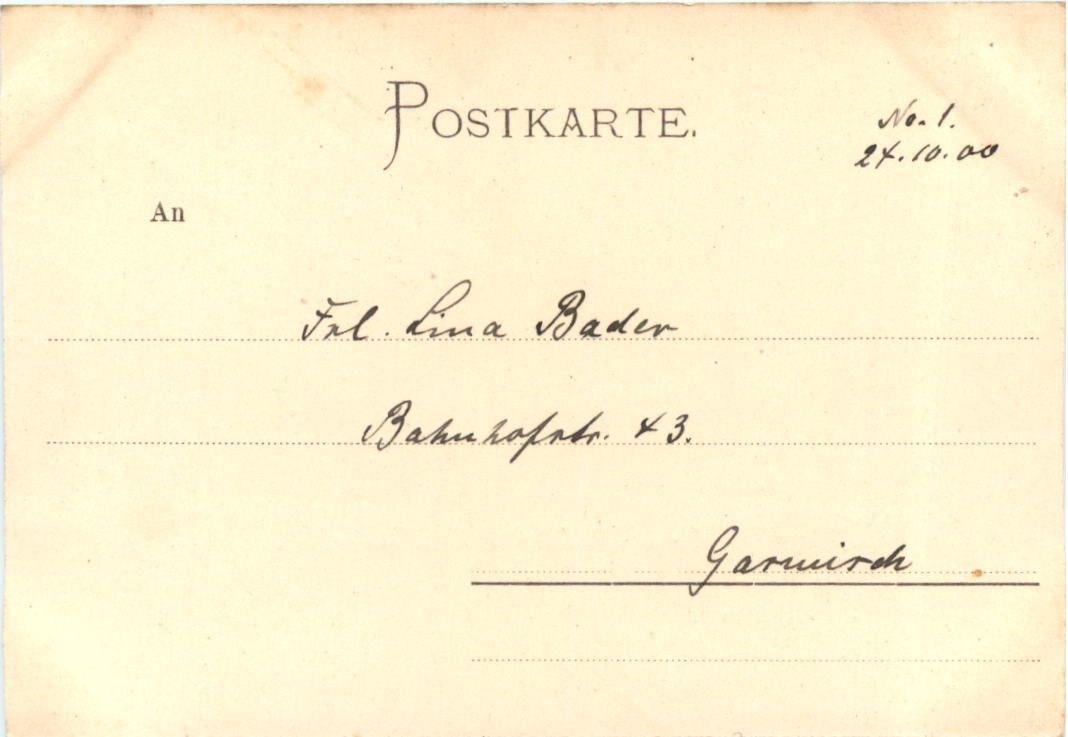 POSTKARTE.
No. 1.
24.10.00
An
Frl. Lina Bader
Bahnhofstr. 43.
Garmisch